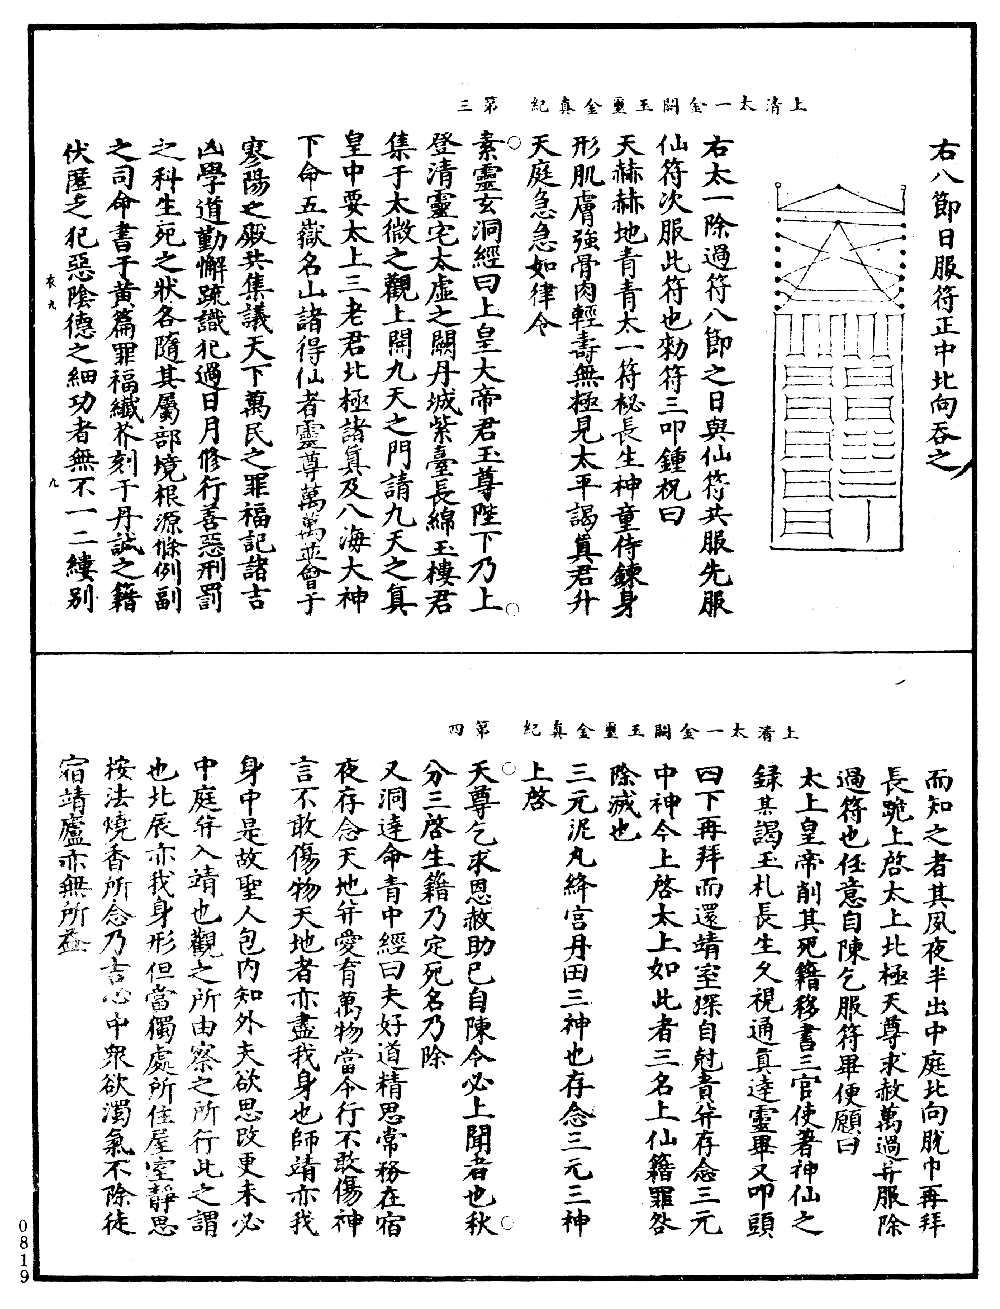 右八節日服符正中北向吞之
右太一除過符八節之日與仙符共服先服
仙符次服此符也勑符三叩鍾柷曰
天赫赫地青青太一符秘長生神童侍鍊身
形肌膚強骨肉輕壽無極見太平謁真君升
天庭急急如律令
上清太一金闕玉璽金真紀　第三
素靈玄洞經曰上皇大帝君玉尊陛下乃上
登清靈宅太虛之闕丹城紫臺長綿玉樓君
集于太微之觀上開九天之門請九天之真
皇中要太上三老君北極諸真及八海大神
下命五嶽名山諸得仙者靈尊萬萬並會于
寥陽之殿共集議天下萬民之罪福記諸吉
凶學道勤懈疏識犯過日月修行善惡刑罰
之科生死之狀各隨其屬部境根源條例副
之司命書于黃篇罪福纖芥刻于丹誠之籍
伏匿之犯惡陰德之細功者無不一二縷別
衣九
九
而知之者其夙夜半出中庭北向脫巾再拜
長跪上啓太上北極天尊求赦萬過并服除
過符也任意自陳乞服符畢便願曰
太上皇帝削其死籍移書三官使著神仙之
錄其謁玉札長生久視通真達靈畢又叩頭
四下再拜而還靖室深自尅責并存念三元
中神今上啓太上如此者三名上仙籍罪咎
除滅也
三元泥丸絳宮丹田三神也存念三元三神
上啓
上清太一金闕玉璽金真紀　第四
天尊乞求恩赦助已自陳令必上聞者也秋
分三啓生籍乃定死名乃除
又洞達命青中經曰夫好道精思常務在宿
夜存念天地并愛育萬物當令行不敢傷神
言不敢傷物天地者亦盡我身也師靖亦我
身中是故聖人包內知外夫欲思改更未必
中庭并入靖也觀之所由察之所行此之謂
也北辰亦我身形但當獨處所住屋室靜思
按法燒香所念乃吉心中衆欲濁氣不除徒
宿靖廬亦無所益
0819